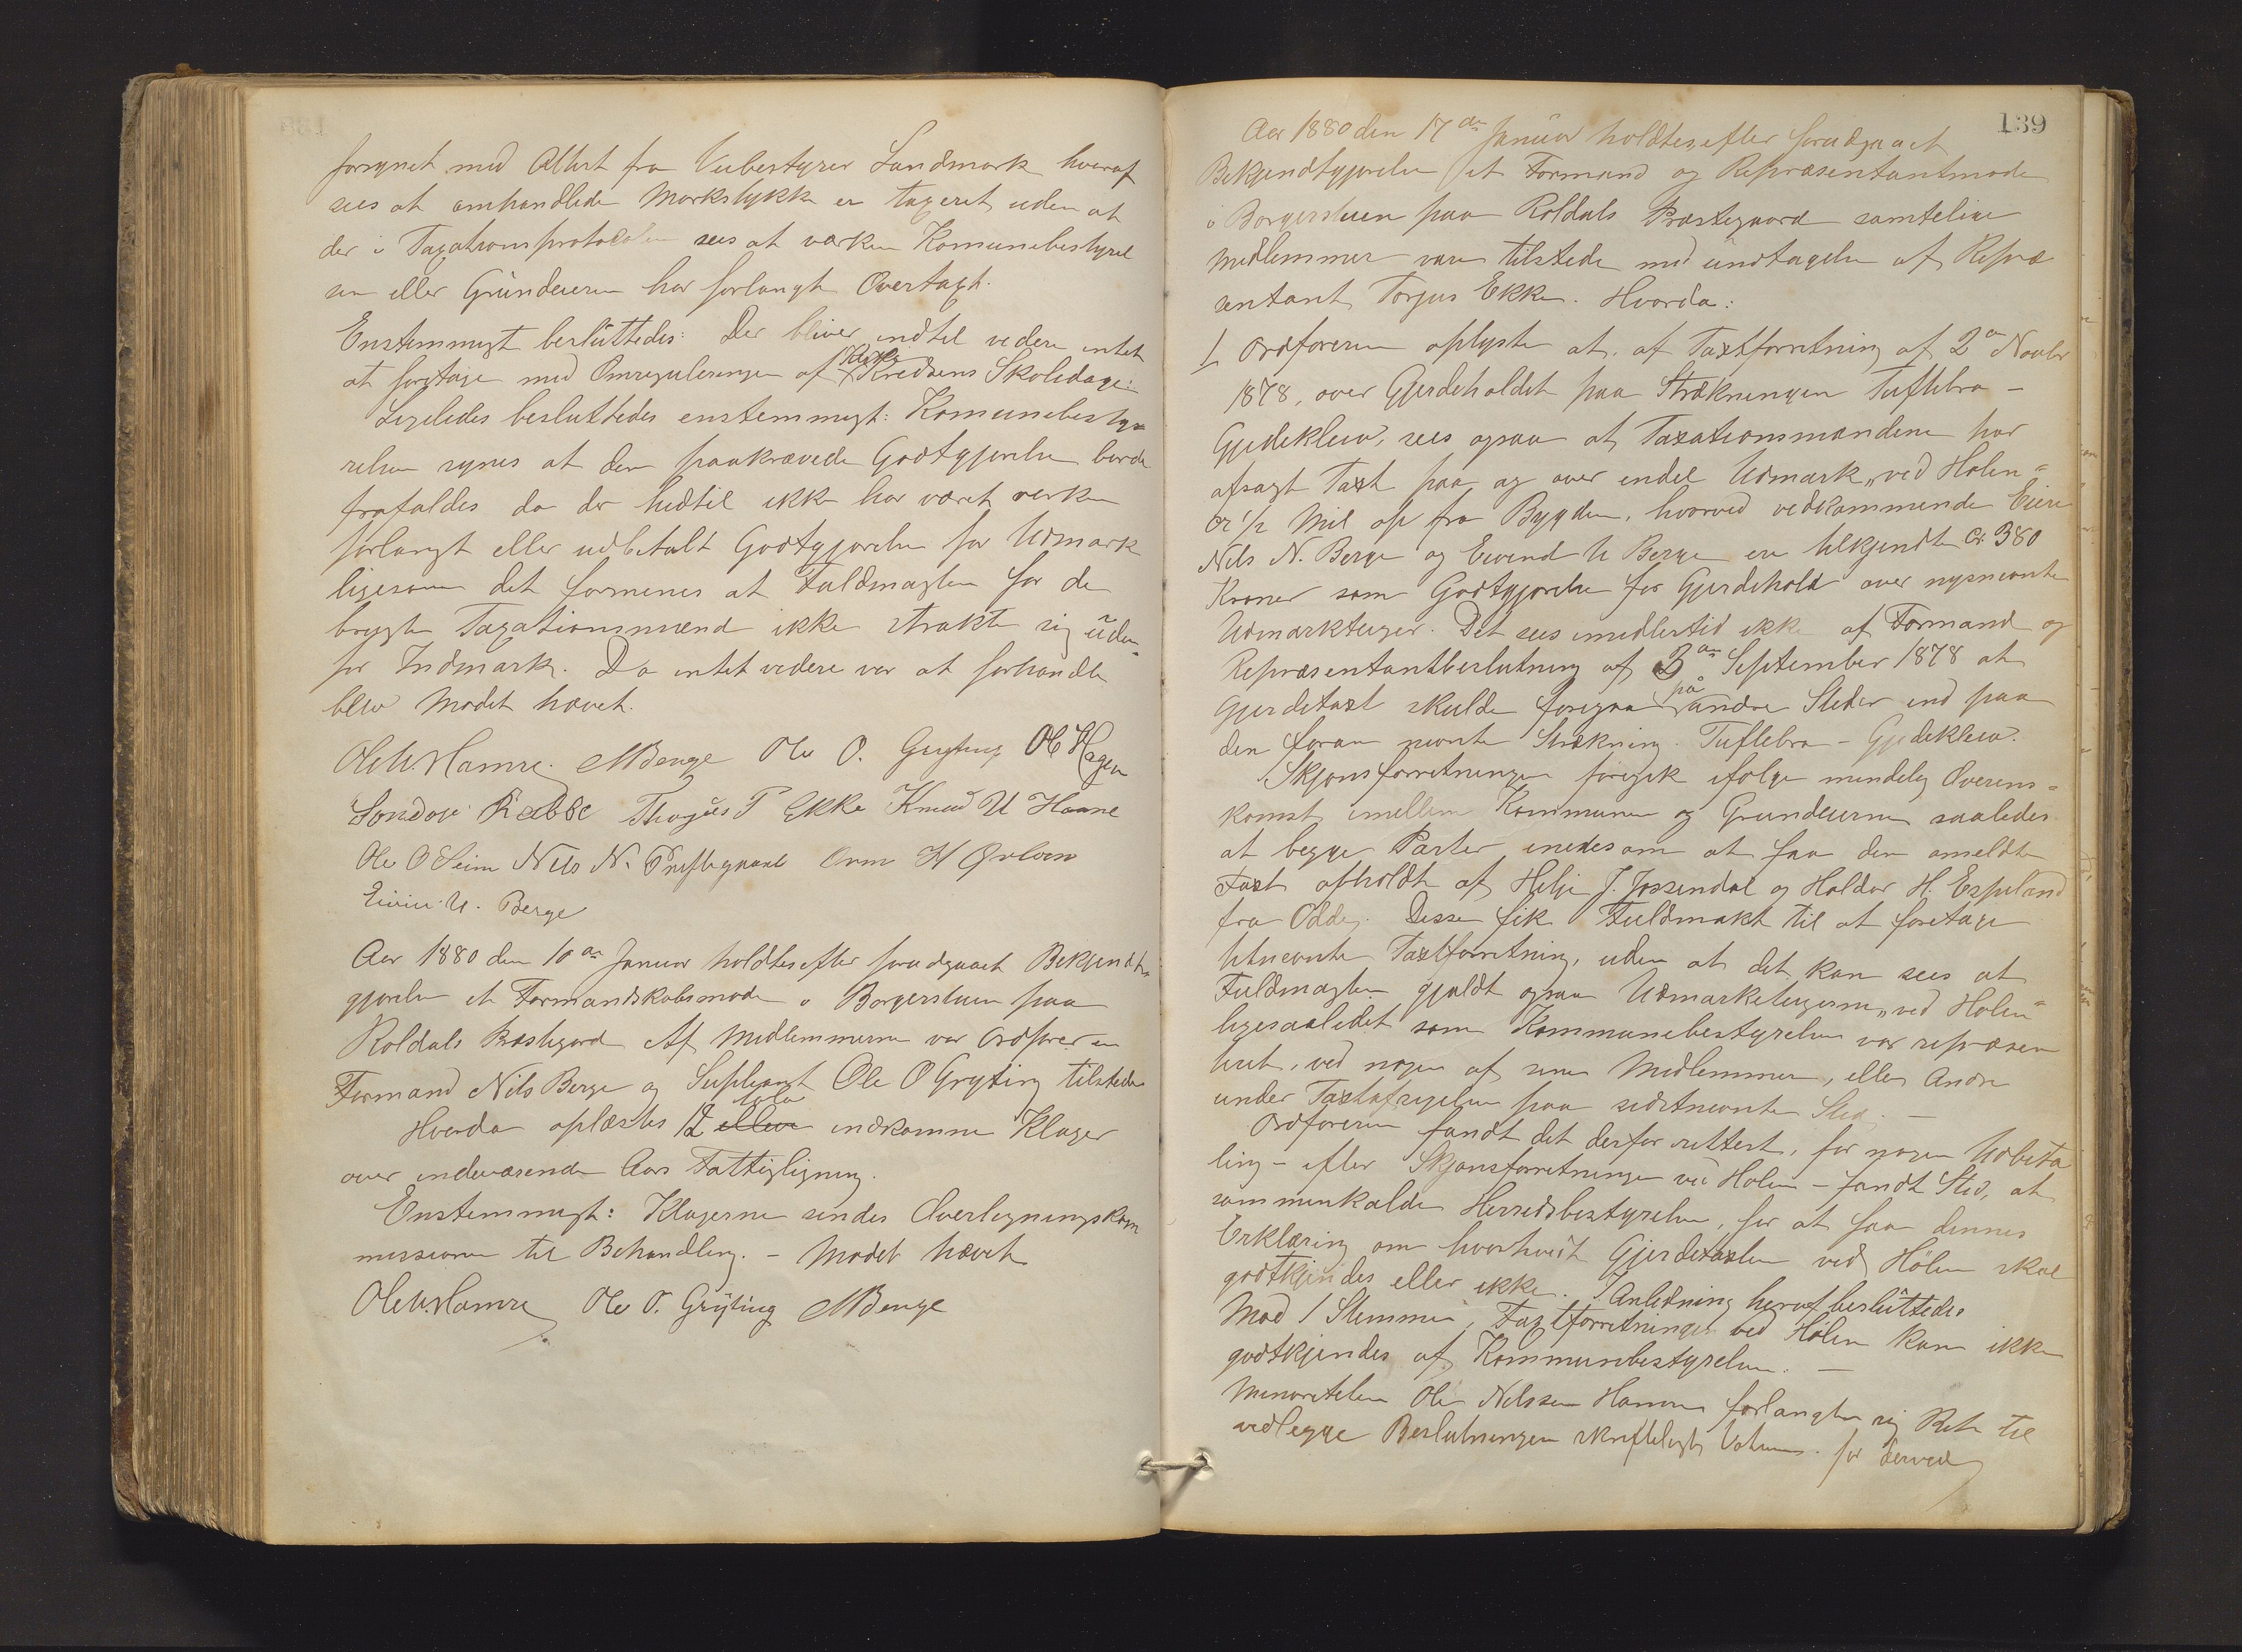 forsynet med Attest fra Veibestyrer Landmark hvoraf
sees at omhandlede Markstykke er taxeret, uden at
der i Taxationsprotocolen sees at værken Komunebestyrel
sen eller Grundeieren har forlangt Overtaxt.
Enstemmigt besluttedes: Der bliver indtil videre intet
at foretage med Omreguleringen af Kredsens Skoledage:
Ligeledes besluttedes enstemmigt: Komunebesty=
relsen synes at den paakrævede Godtgjørelse burde
frafaldes da der hidtil ikke har været verken
forlangt eller udbetalt Godtgjørelse for Udmark
ligesom det formenes at Fuldmagten for de
brugte Taxationsmænd ikke strakte sig uden=
for Indmark. Da intet videre var at forhandle
blev Mødet hævet.
Ole N. Hamre. NBerge Ole O. Gryting Ole Hagen
Sondov Rabbe Thorgius T Ekke Knud U Haane
Ole O Seim Nils N. Prestegaard Orm H
Eivin. U. Berge
Aar 1880 den 10de Januar holdtes efter foradgaaet Bekjendt=
gjørelse et Formandskabsmøde i Borgerstuen paa
Røldals Præstegard Af Medlemmerne var Ordføreren
Formand Nils Berge og Supleant Ole O Gryting tilstede
Hvorda oplæstes 12 tolv elleve indkomne Klager
over indeværende Aars Fattigligning.
Enstemmigt: Klagerne sendes Overligningskom
missionen til Behandling. – Mødet hævet
Ole N. Hamre Ole O. Gryting NBerge
139
Aar 1880 den 17de Januar holdtes efter foradgaaet
Bekjendtgjørelse et Formand og Repræsentantmøde
i Borgerstuen paa Røldals Præstegaard samtlige
Medlemmer vare tilstede med undtagelse af Repræ
sentant, Torjus Ekke. Hvorda:
1. Ordføreren oplyste at, af Taxtforretning af 2de Novbr
1878, over Gjerdeholdet paa Strækningen Tuftebro –
Gjedeklev, sees ogsaa at Taxationsmændene har
afsagt Taxt paa og over endel Udmark „ved Hølen"
cr 1/2 Mil op fra Bygden, hvorved vedkommende Eiere
Nils N. Berge og Eivend U Berge ere tilkjendte Cr. 380
Kroner som Godtgjørelse for Gjerdehold over nysnævnte
Udmarkteiger. Det sees imidlertid ikke af Formand og
Repræsentantbeslutning af 3de September 1878 at
Gjerdetaxt skulde foregaa på andre Steder end paa
den foran nevnte Strækning. Tuftebro – Gjedeklev.
Skjønsforretningen foregik ifølge mindelig Overens=
komst imellem Kommunen og Grundeierne saaledes
at begge Parter enedes om at faa den omeldte
Taxt afholdt af Helje J. Jøssendal og Haldor H. Espeland
fra Odde. Disse fik Fuldmakt til at foretage
Taxtforretning, uden at det kan sees at
Fuldmagten gjaldt ogsaa Udmarketeigerne „ved Hølen"
ligesaalidet som Kommunebestyrelsen var repræsen
teret, ved nogen af sine Medlemmer, eller Andre
under Taxtafsigelsen paa sidstnevnte Sted. –
Ordføreren fandt det derfor rettest, før nogen Udbeta
ling – efter Skjønsforretningen ved Hølen – fandt Sted, at
sammenkalde Herredsbestyrelsen, for at faa dennes
Erklæring om hvorhvidt Gjerdetaxten ved Hölen skal
godtkjendes eller ikke. I Anledning heraf besluttedes
Mod 1 Stemme, Taxtforretningen ved Hölen kan ikke
godtkjendes af Kommunebestyrelsen. –
Minoriteten Ole Nilssen Hamre forlangte sig Ret til
vedlegge Beslutningen skriftligt Votum. for derved